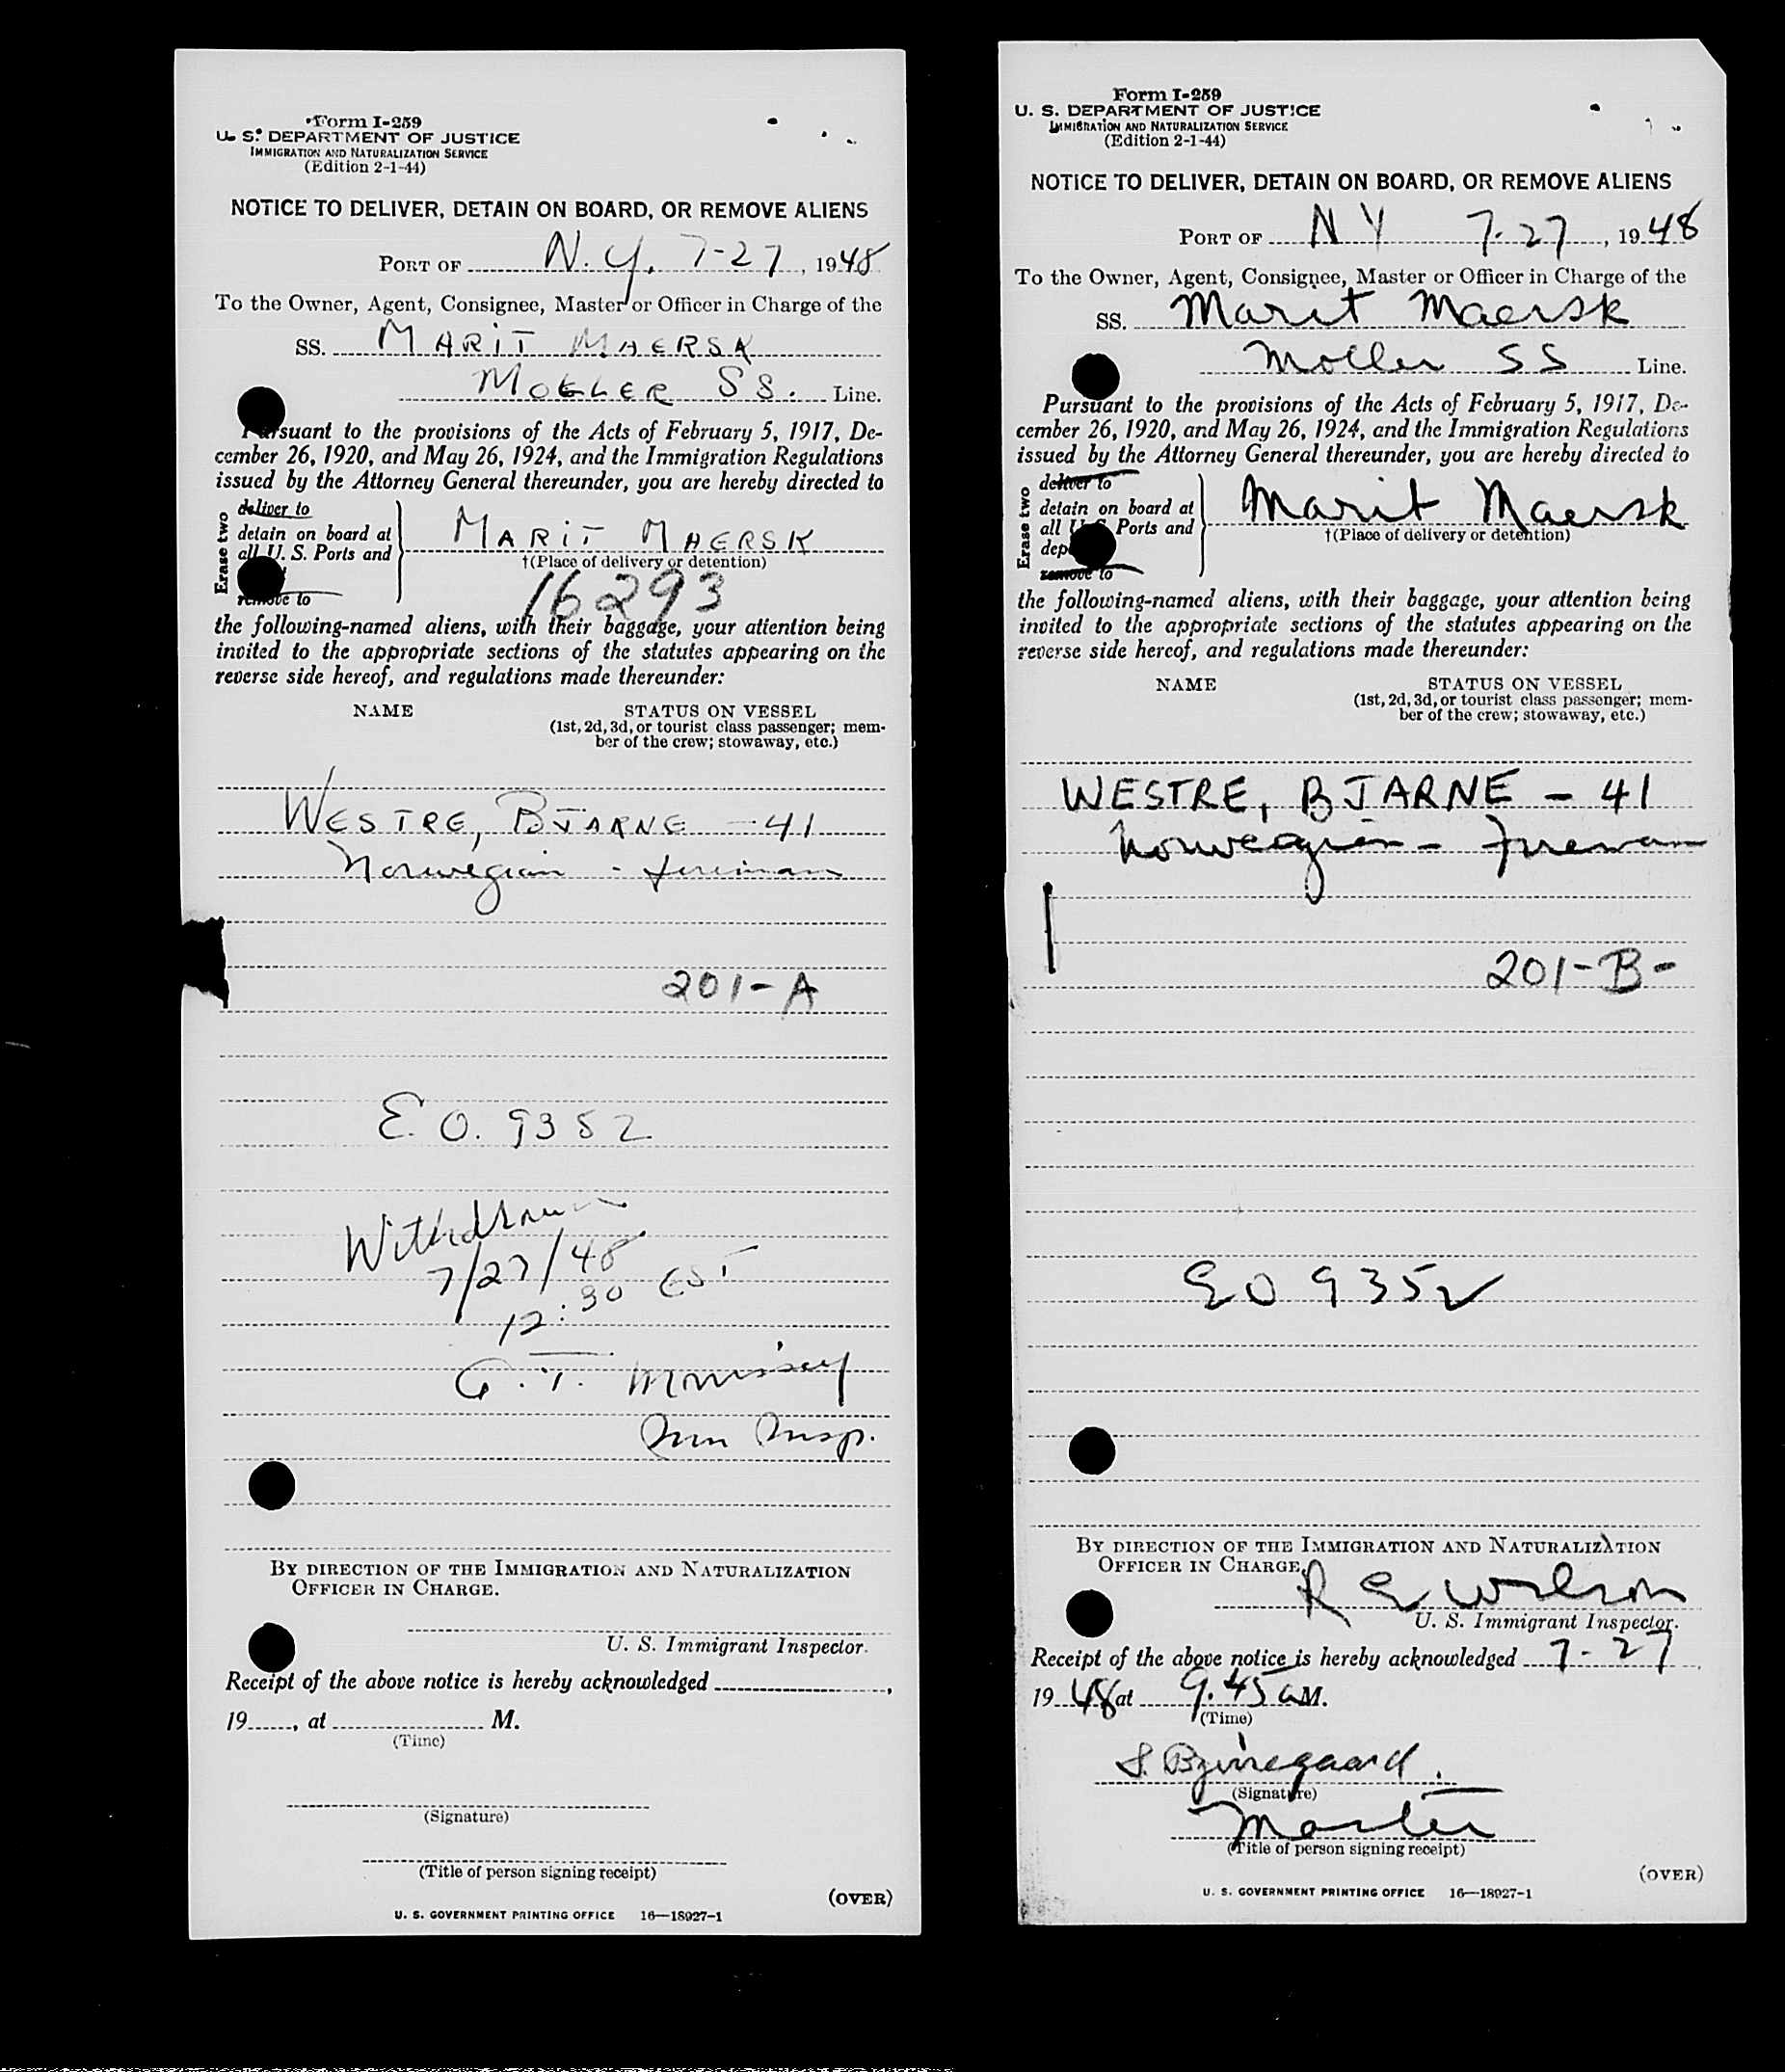 Form I-259
U. S. DEPARTMENT OF JUSTICE
IMMIGRATION AND NATURALIZATION SERVICE
(Edition 2-1-44)
NOTICE TO DELIVER, DETAIN ON BOARD, OR REMOVE ALIENS
PORT OF N. Y. 7-27, 1948
To the Owner, Agent, Consignee, Master or Officer in Charge of the
SS. MARIT MAERSK
MOELLER SS. Line.
Pursuant to the provisions of the Acts of February 5, 1917, De-
cember 26, 1920, and May 26, 1924, and the Immigration Regulations
issued by the Attorney General thereunder, you are hereby directed to
Erase two
deliver to
detain on board at
all U. S. Ports and
remove to
MARIT MAERSK
†(Place of delivery or detention)
16293
the following-named aliens, with their baggage, your attention being
invited to the appropriate sections of the statutes appearing on the
reverse side hereof, and regulations made thereunder:
NAME STATUS ON VESSEL
(1st, 2d, 3d, or tourist class passenger; mem-
ber of the crew; stowaway, etc.)
WESTRE, BJARNE - 41
Norwegian - fireman
201-A
E.O. 9352
Withdrawn
7/27/48
12:30 EST
Morrissey
Imm Insp.
BY DIRECTION OF THE IMMIGRATION AND NATURALIZATION
OFFICER IN CHARGE.
U. S. Immigrant Inspector.
Receipt of the above notice is hereby acknowledged ,
19 , at M.
(Time)
(Signature)
(Title of person signing receipt)
(OVER)
U. S. GOVERNMENT PRINTING OFFICE 16—18927-1
Form I-259
U. S. DEPARTMENT OF JUSTICE
IMMIGRATION AND NATURALIZATION SERVICE
(Edition 2-1-44)
NOTICE TO DELIVER, DETAIN ON BOARD, OR REMOVE ALIENS
PORT OF N Y 7-27, 1948
To the Owner, Agent, Consignee, Master or Officer in Charge of the
SS. Marit Maersk
Moller SS Line.
Pursuant to the provisions of the Acts of February 5, 1917, De-
cember 26, 1920, and May 26, 1924, and the Immigration Regulations
issued by the Attorney General thereunder, you are hereby directed to
Erase two
deliver to
detain on board at
all U. S. Ports and
remove to
Marit Maersk
†(Place of delivery or detention)
the following-named aliens, with their baggage, your attention being
invited to the appropriate sections of the statutes appearing on the
reverse side hereof, and regulations made thereunder:
NAME STATUS ON VESSEL
(1st, 2d, 3d, or tourist class passenger; mem-
ber of the crew; stowaway, etc.)
WESTRE, BJARNE - 41
Norwegian - fireman
201-B-
EO 9352
BY DIRECTION OF THE IMMIGRATION AND NATURALIZATION
OFFICER IN CHARGE.
R E Wilson
U. S. Immigrant Inspector.
Receipt of the above notice is hereby acknowledged 7-27,
1948 at 9.45 a M.
(Time)
(Signature)
Master
(Title of person signing receipt)
(OVER)
U. S. GOVERNMENT PRINTING OFFICE 16—18927-1